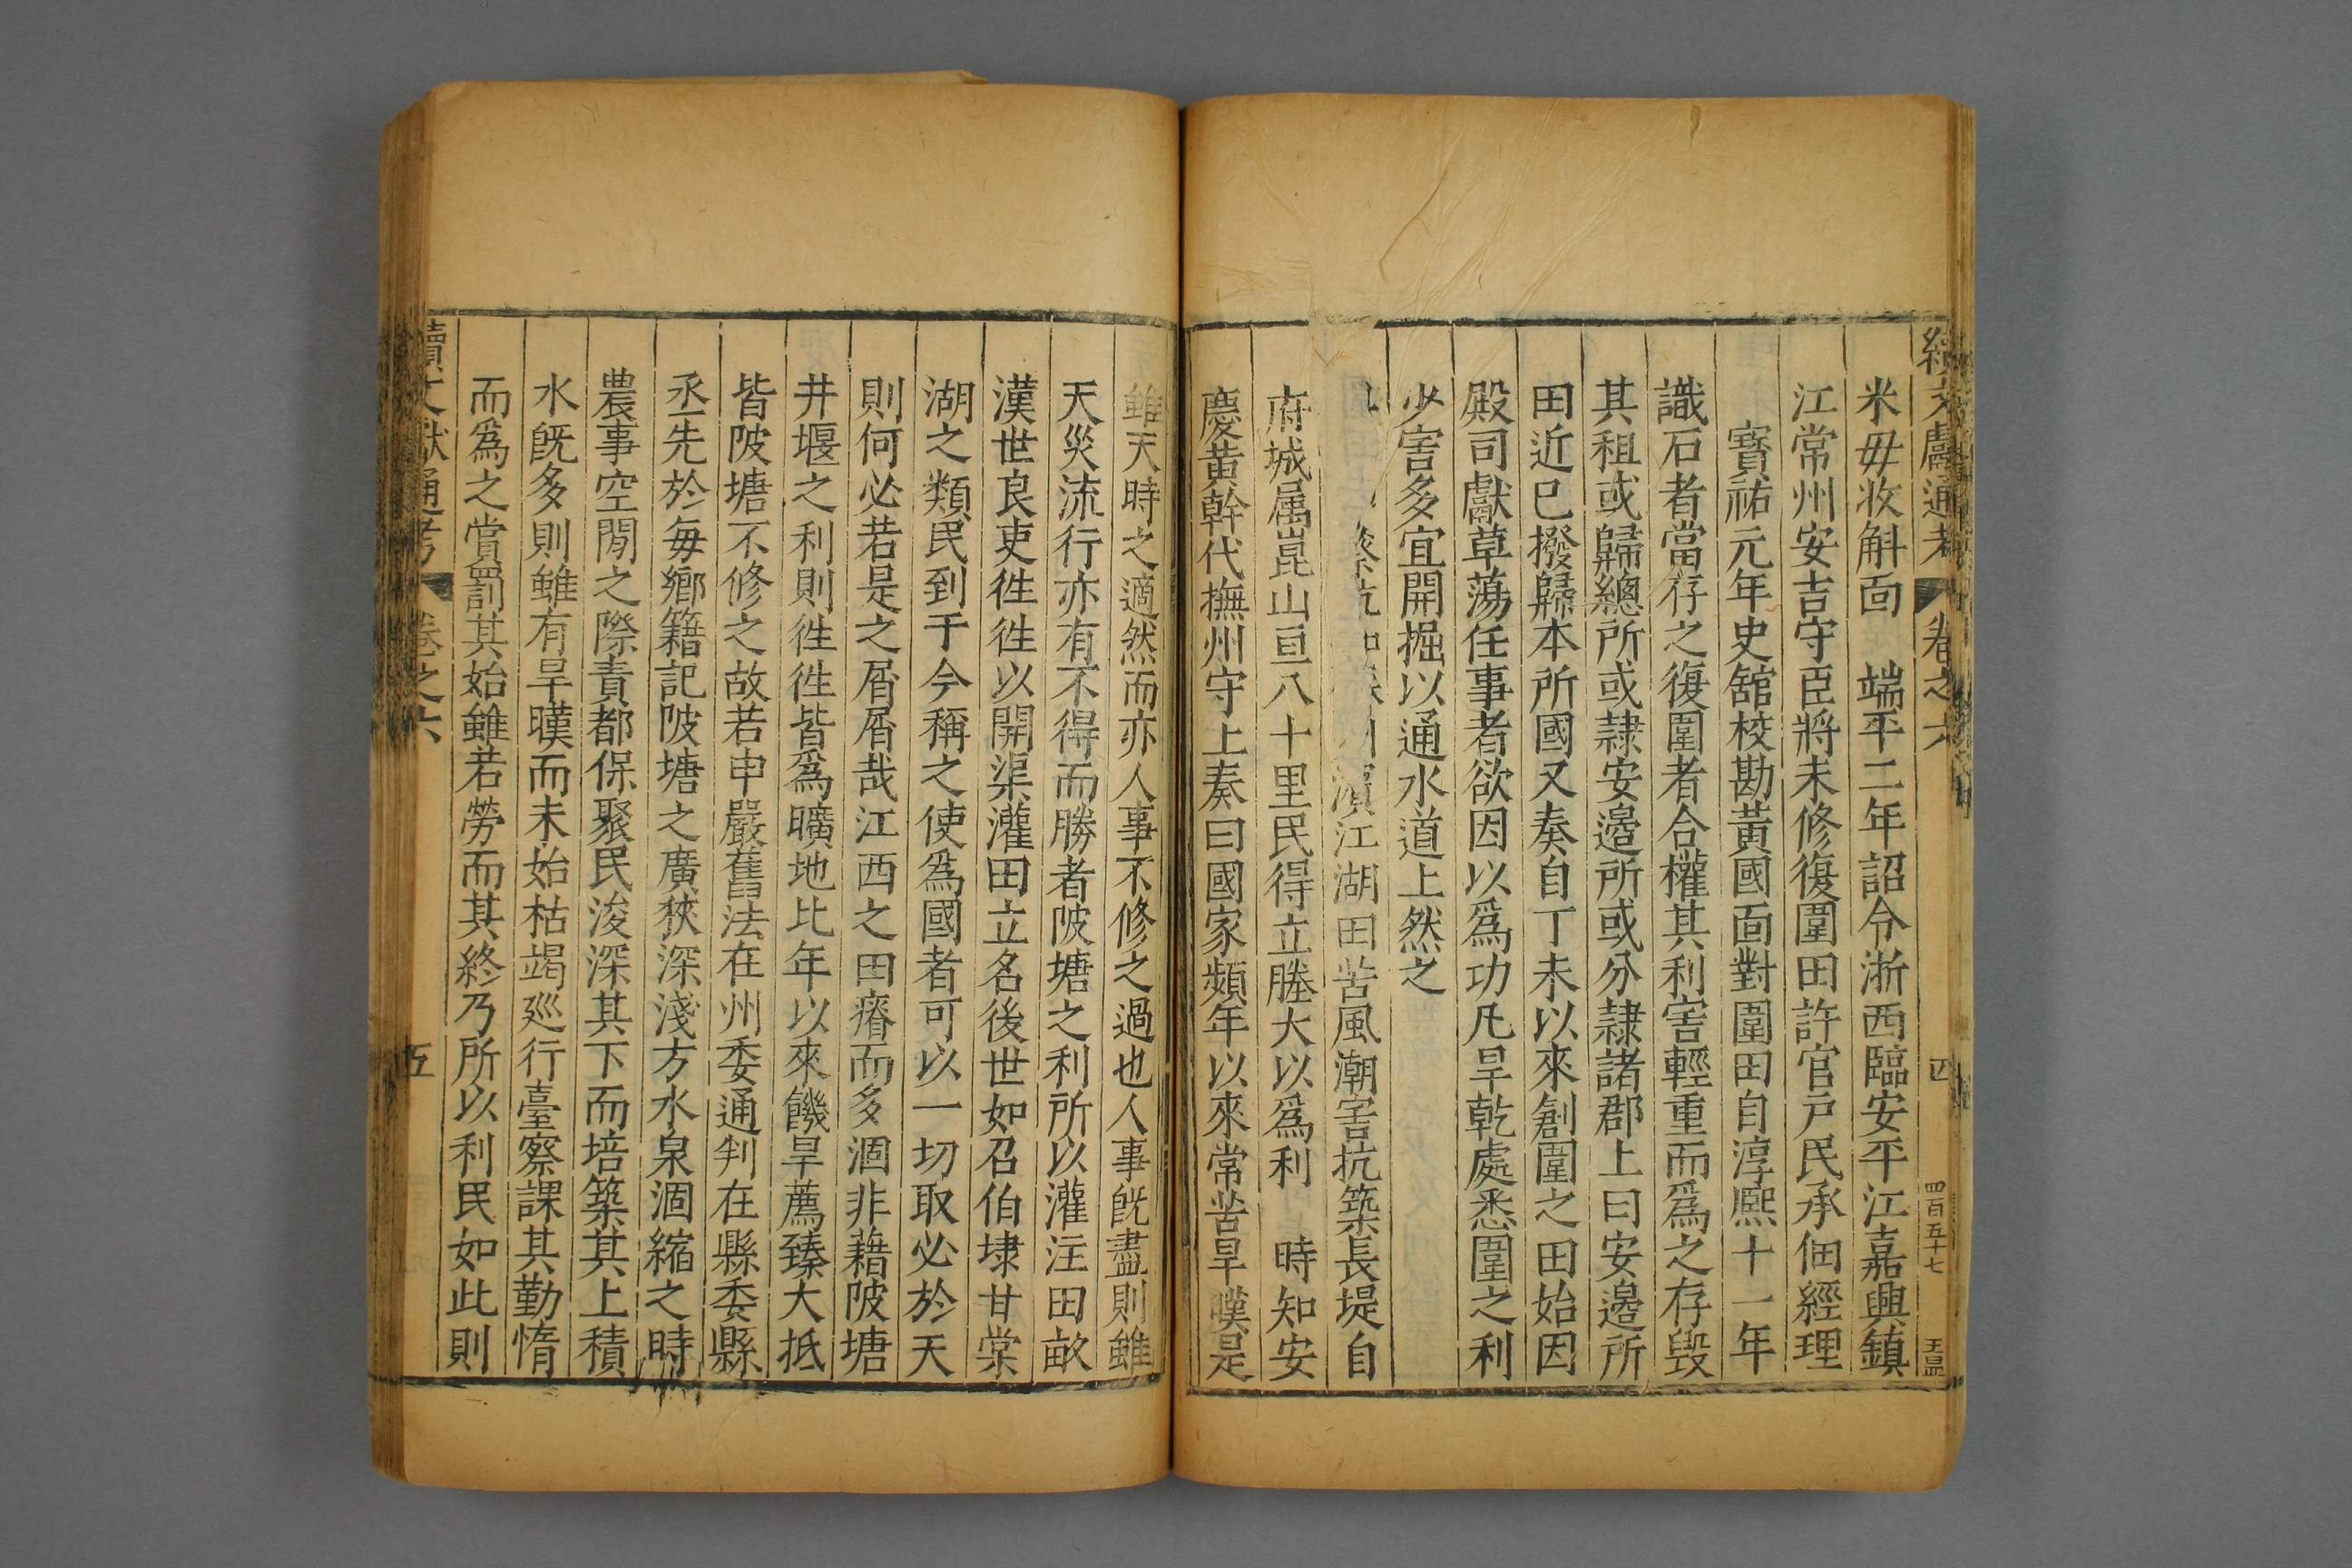 續文獻通考 卷之六 四 四百五十七 王昷
米毋收斛面 端平二年詔令浙西臨安平江嘉興鎮
江常州安吉守臣將未修復圍田許官戸民承佃經理
寳祐元年史舘校勘黃國面對圍田自淳熙十一年
識石者當存之復圍者合權其利害輕重而爲之存毀
其租或歸總所或隷安邉所或分隷諸郡上曰安邉所
田近已撥歸本所國又奏自丁未以來創圍之田始因
殿司獻草蕩任事者欲因以爲功凡旱乾處悉圍之利
少害多宜開掘以通水道上然之
濵江湖田苦風潮害抗築長堤自
府城属崑山亘八十里民得立塍大以爲利 時知安
慶黃幹代撫州守上奏曰國家頻年以來常苦旱暵是
雖天時之適然而亦人事不修之過也人事旣盡則雖
天災流行亦有不得而勝者陂塘之利所以灌注田畝
漢世良吏徃徃以開渠灌田立名後世如召伯埭甘棠
湖之類民到于今稱之使爲國者可以一切取必於天
則何必若是之屑屑哉江西之田瘠而多涸非藉陂塘
井堰之利則徃徃皆爲曠地比年以來饑旱薦臻大抵
皆陂塘不修之故若申嚴舊法在州委通判在縣委縣
丞先於毎鄉籍記陂塘之廣狹深淺方水泉涸縮之時
農事空閒之際責都保聚民浚深其下而培築其上積
水旣多則雖有旱暵而未始枯竭廵行臺察課其勤惰
而爲之賞罰其始雖若勞而其終乃所以利民如此則
續文獻通考 卷之六 五